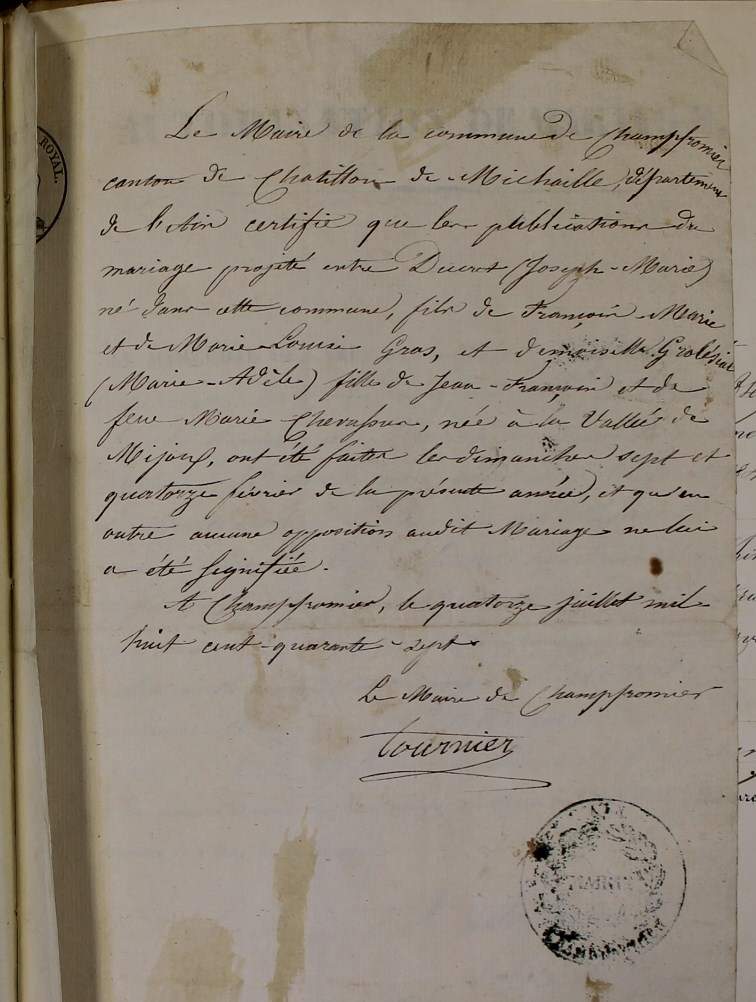 ROYAL.
Le Maire de la commune de Champfromier
canton de Chatillon de Michaille, département
de l'Ain certifie que les publications du
mariage projeté entre Ducret (Joseph-Marie)
né dans cette commune, fils de François-Marie
et de Marie-Louise Gros, et demoiselle
(Marie-Adèle) fille de Jean-François et de
feue Marie Chevassus, née à la Vallée de
Mijoux, ont été faites les dimanches sept et
quatorze février de la présente année, et qu'en
outre aucune opposition audit Mariage ne lui
a été signifiée.
A Champfromier, le quatorze juillet mil
huit cent-quarante-sept.
Le Maire de Champfromier
Tournier
MAIRIE